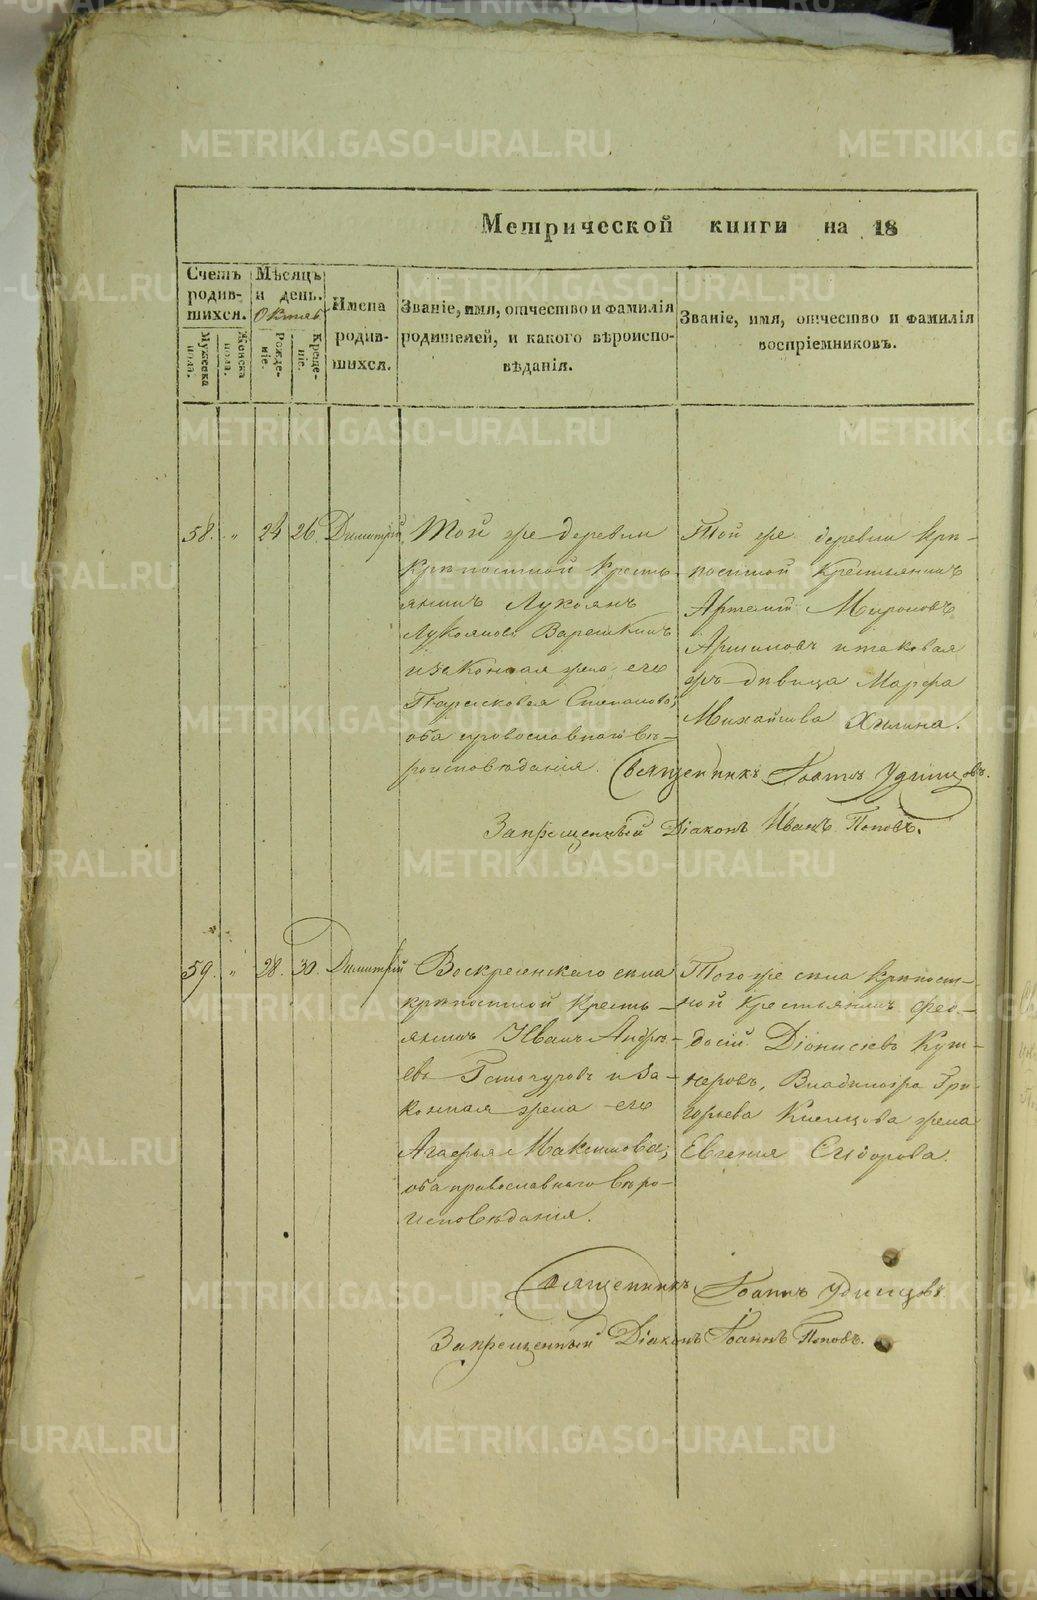 Метрической книги на 18
Счетъ родив- шихся.
Мужеска пола.
Женска пола.
Мѣсяцъ и день.
Октяб
Рожде- ніе.
Креще- ніе.
Имена родив- шихся.
Званіе, имя, отчество и фамилія
родителей, и какого вѣроиспо-
вѣданія.
Званіе, имя, отчество и фамилія
воспріемниковъ.
58. " 24 26. Димитрій
Той же деревни
крѣпостной кресть
янинъ Лукоянъ
Лукояновъ Варешкинъ
и законная жена его
Степанова;
оба православнаго вѣ-
роисповѣданія.
Той же деревни крѣ-
постной крестьянинъ
Артемій Мироновъ
Аршиновъ и таковая
жъ дѣвица Марфа
Михайлова Хилина.
Священникъ Іоаннъ Удинцовъ.
Запрещенный Діаконъ Иванъ Поповъ.
59. " 28. 30. Димитрій
Воскресенскаго села
крѣпостной кресть-
янинъ Иванъ Андрѣ-
евъ и за-
конная жена его
Агафья Максимова;
оба православнаго вѣро-
исповѣданія.
Того же села крѣпост-
ной крестьянинъ Фео-
досій Діонисіевъ Куш-
неровъ, Владиміра Гри-
горьева жена
Евгенія Сидорова.
Священникъ Іоаннъ Удинцовъ
Запрещенный Діаконъ Іоаннъ Поповъ.
METRIKI.GASO-URAL.RU